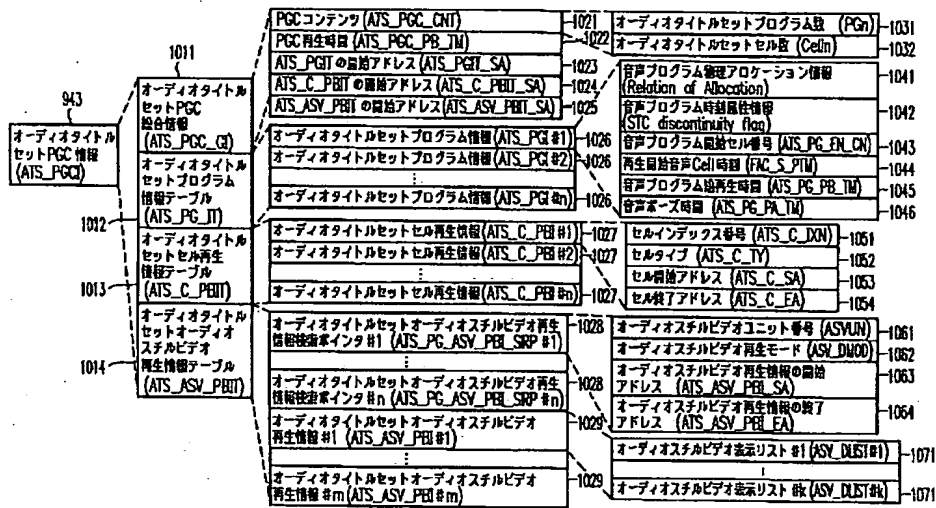 943
オーディオタイトル
セットPGC情報
(ATS_PGCI)
1011
オーディオタイトル
セットPGC
総合情報
(ATS_PGC_GI)
オーディオタイトル
セットプログラム
情報テーブル
(ATS_PG_IT)
1012
オーディオタイトル
セットセル再生
情報テーブル
(ATS_C_PBIT)
1013
オーディオタイトル
セットオーディオ
スチルビデオ
再生情報テーブル
(ATS_ASV_PBIT)
1014
PGCコンテンツ(ATS_PGC_CNT)
1021
PGC再生時間(ATS_PGC_PB_TM)
1022
ATS_PGITの開始アドレス(ATS_PGIT_SA)
1023
ATS_C_PBITの開始アドレス(ATS_C_PBIT_SA)
1024
ATS_ASV_PBITの開始アドレス(ATS_ASV_PBIT_SA)
1025
オーディオタイトルセットプログラム情報(ATS_PGI#1)
1026
オーディオタイトルセットプログラム情報(ATS_PGI#2)
1026
オーディオタイトルセットプログラム情報(ATS_PGI#n)
1026
オーディオタイトルセットセル再生情報(ATS_C_PBI#1)
1027
オーディオタイトルセットセル再生情報(ATS_C_PBI#2)
1027
オーディオタイトルセットセル再生情報(ATS_C_PBI#n)
1027
オーディオタイトルセットオーディオスチルビデオ再生
情報検索ポインタ#1 (ATS_PG_ASV_PBI_SRP#1)
1028
オーディオタイトルセットオーディオスチルビデオ再生
情報検索ポインタ#n (ATS_PG_ASV_PBI_SRP#n)
1028
オーディオタイトルセットオーディオスチルビデオ
再生情報#1 (ATS_ASV_PBI#1)
1029
オーディオタイトルセットオーディオスチルビデオ
再生情報#m(ATS_ASV_PBI#m)
1029
オーディオタイトルセットプログラム数 (PGn)
1031
オーディオタイトルセットセル数 (Celln)
1032
音声プログラム物理アロケーション情報
(Relation of Allocation)
1041
音声プログラム時刻属性情報
(STC discontinuity flag)
1042
音声プログラム開始セル番号(ATS_PG_EN_CN)
1043
再生開始音声Cell時刻 (FAC_S_PTM)
1044
音声プログラム総再生時間 (ATS_PG_PB_TM)
1045
音声ポーズ時間 (ATS_PG_PA_TM)
1046
セルインデックス番号(ATS_C_IXN)
1051
セルタイプ (ATS_C_TY)
1052
セル開始アドレス(ATS_C_SA)
1053
セル終了アドレス(ATS_C_EA)
1054
オーディオスチルビデオユニット番号(ASVUN)
1061
オーディオスチルビデオ再生モード(ASV_DMOD)
1062
オーディオスチルビデオ再生情報の開始
アドレス (ATS_ASV_PBI_SA)
1063
オーディオスチルビデオ再生情報の終了
アドレス (ATS_ASV_PBI_EA)
1064
オーディオスチルビデオ表示リスト#1(ASV_DLIST#1)
1071
オーディオスチルビデオ表示リスト#k(ASV_DLIST#k)
1071